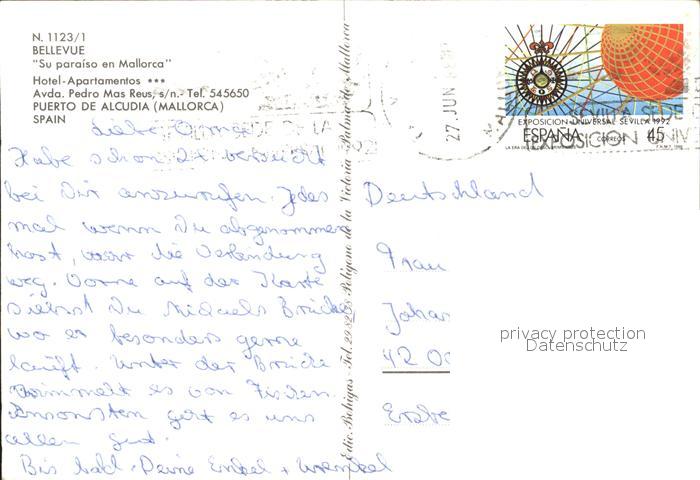 N. 1123/1
BELLEVUE
"Su paraíso en Mallorca"
Hotel-Apartamentos ***
Avda. Pedro Mas Reus, s/n.- Tel. 545650
PUERTO DE ALCUDIA (MALLORCA)
SPAIN
Liebe Oma
Habe schon 2x versucht
bei Dir anzurufen. Jedes
mal wenn Du abgenommen
hast, war die Verbindung
weg. Vorne auf der Karte
siehst Du Michaels Brücke
wo er besonders gerne
läuft. Unter der Brücke
wimmelt es von Fischen.
Ansonsten geht es uns
allen gut.
Bis bald. Deine Enkel + Urenkel
Edic. Bohigas - Tel. - Polígono de la Victoria - Palma de Mallorca
27 JUN
EXPOSICION UNIVERSAL SEVILLA 1992
ESPAÑA
CORREOS
45
SEVILLA SEDE
EXPOSICION UNIV
Deutschland
Frau
Johan
42 O
privacy protection
Datenschutz